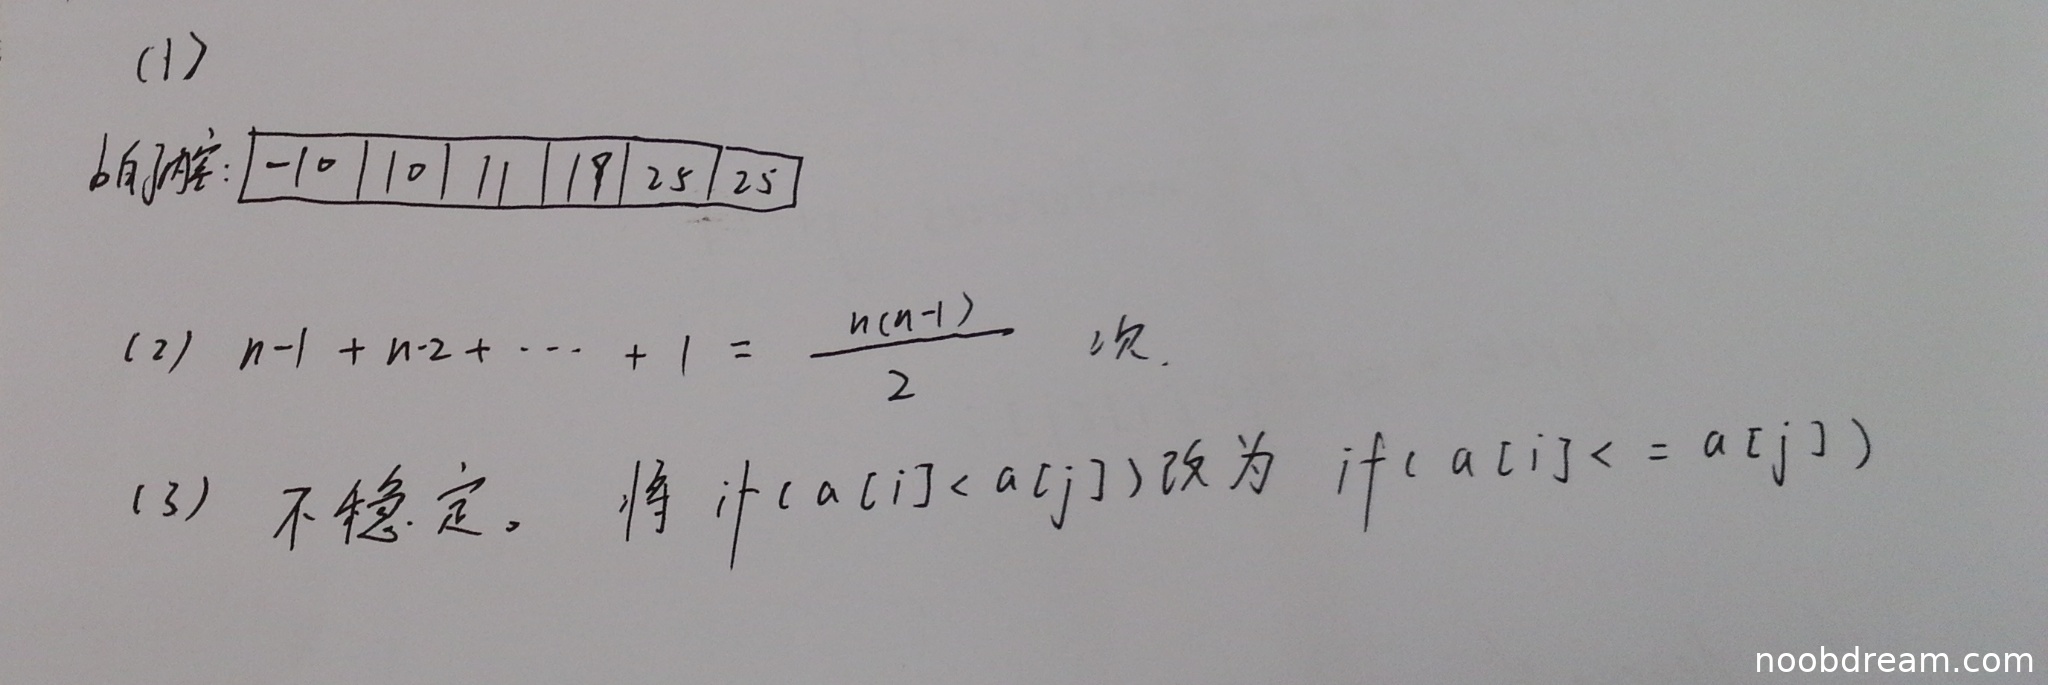 (1)
b的内容: -10 10 11 19 25 25
(2) n-1 + n-2 + ··· + 1 = n(n-1) / 2 次.
(3) 不稳定。 将 if(a[i]<a[j])改为 if(a[i]<=a[j])
noobdream.com